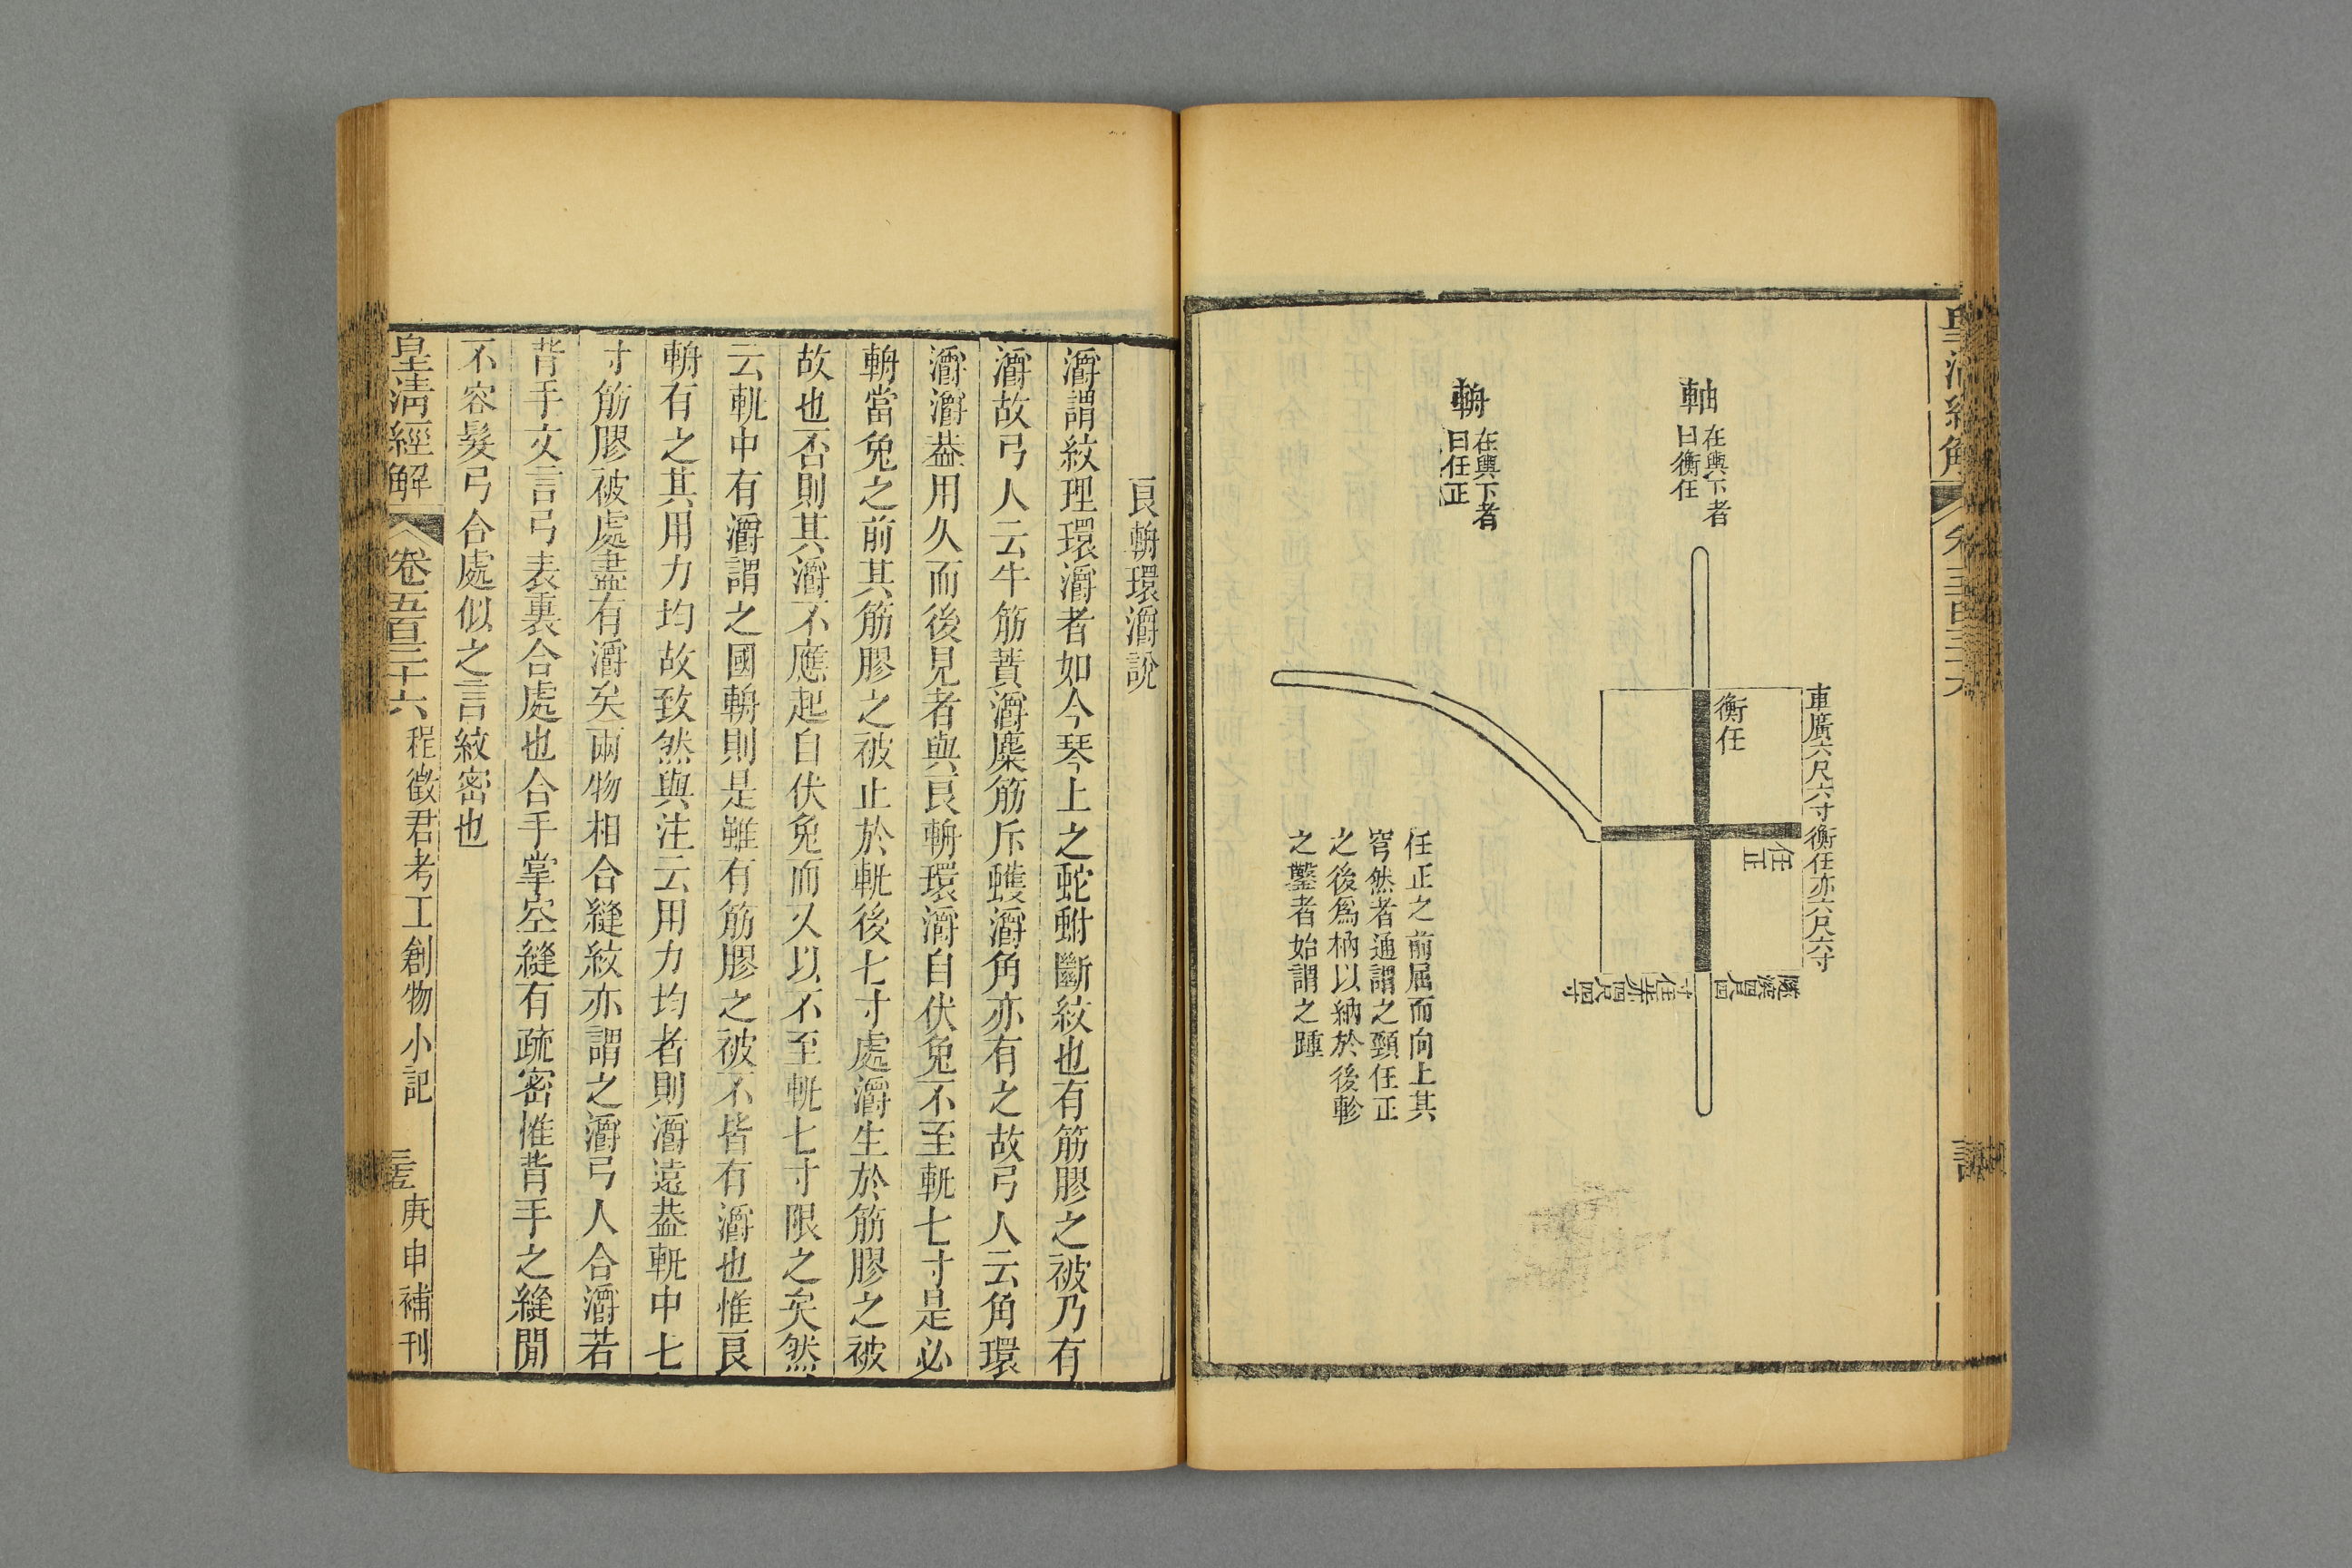 皇清經解
軸
在輿下者
曰衡任
輈
在輿下者
曰任正
車廣六尺六寸衡任亦六尺六寸
衡任
任正
隧深四尺四
寸任亦四尺四寸
任正之前屈而向上其
穹然者通謂之頸任正
之後爲枘以納於後軫
之鑿者始謂之踵
良輈環灂說
灂謂紋理環灂者如今琴上之蛇蚹斷紋也有筋膠之被乃有
灂故弓人云牛筋蕡灂麋筋斥蠖灂角亦有之故弓人云角環
灂灂葢用久而後見者與良輈環灂自伏兔不至軓七寸是必
輈當兔之前其筋膠之被止於軓後七寸處灂生於筋膠之被
故也否則其灂不應起自伏兔而又以不至軓七寸限之矣然
云軓中有灂謂之國輈則是雖有筋膠之被不皆有灂也惟良
輈有之其用力均故致然與注云用力均者則灂遠葢軓中七
寸筋膠被處盡有灂矣兩物相合縫紋亦謂之灂弓人合灂若
背手文言弓表裏合處也合手掌空縫有疏密惟背手之縫閒
不容髮弓合處似之言紋密也
皇清經解 卷五百三十六 程徵君考工創物小記 庚申補刊